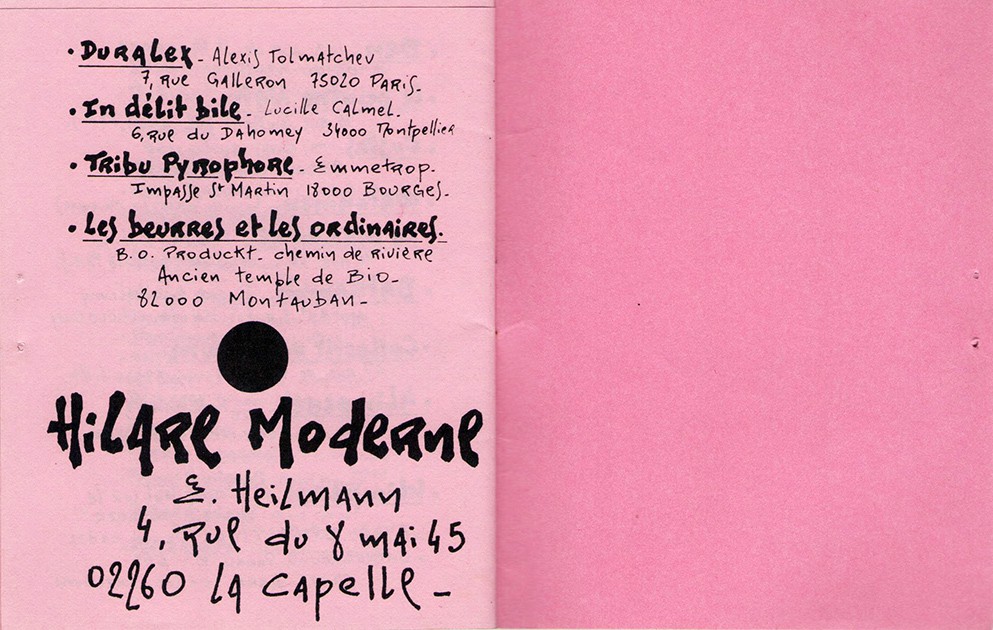 • Duralex - Alexis Tolmatchev
7, rue Galleron 75020 Paris.
• In délit bile - Lucille Calmel.
6, rue du Dahomey 34000 Montpellier
• Tribu Pyrophore - Emmetrop.
Impasse St Martin 18000 Bourges -
• Les beurres et les ordinaires.
B.O. Produckt - chemin de rivière
Ancien temple de Bio -
82000 Montauban -
Hilare Moderne
E. Heilmann
4, Rue du 8 mai 45
02260 La Capelle -